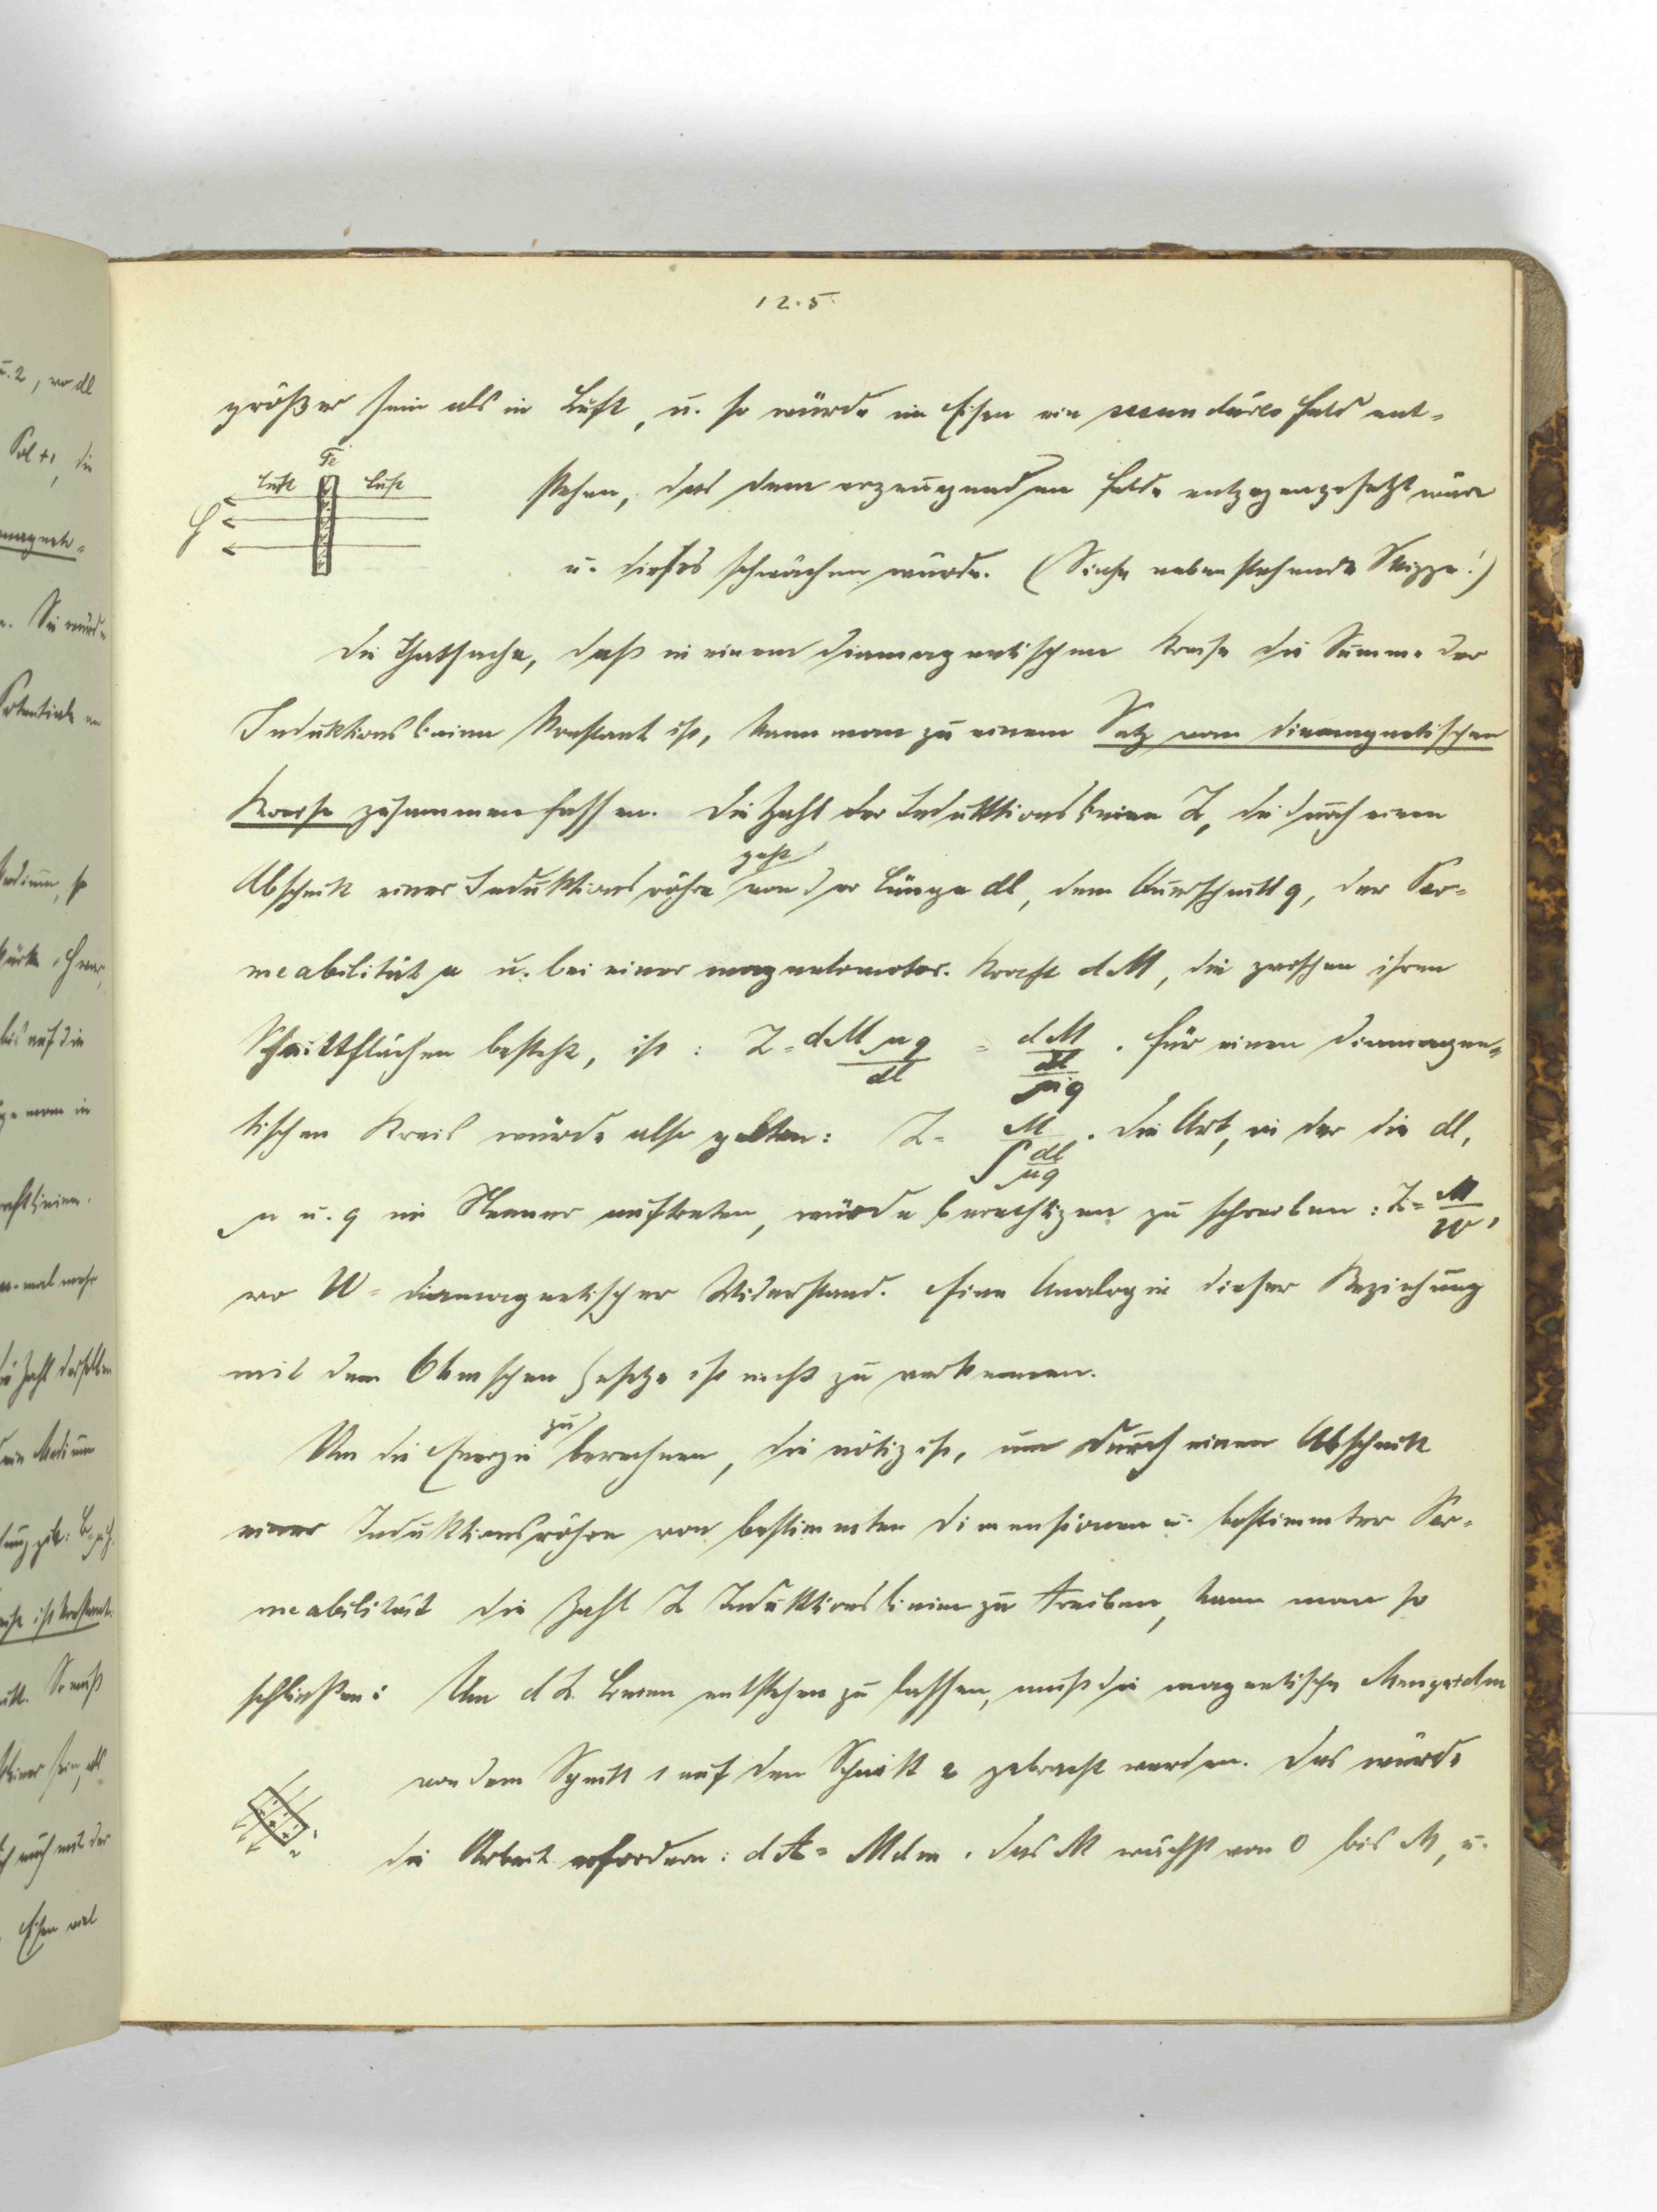 125.
größer sein als in Luft, u. so würde im Eisen ein secundäres Feld ent-
Fe
Luft Luft
H
stehen, das dem erzeugenden Felde entgegengesetzt wäre
u. dieses schwächen würde. (Siehe nebenstehende Skizze!)
Die Thatsache, daß in einem diamagnetischen Kreise die Summe der
Induktionslinien konstant ist, kann man zu einem Satz vom diamagnetischen
Kreise zusammenfassen. Die Zahl der Induktionslinien Z, die durch einen
Abschnitt einer Induktionsröhre geht von der Länge dl, dem Querschnitt q, der Per-
meabilität μ u. bei einer magnetomotor. Kraft dM, die zwischen ihren
Schnittflächen besteht, ist: Z = dM μq / dl = dM / (dl / μq). Für einen diamagne-
tischen Kreis würde also gelten: Z = M / ∫ dl/μq. Die Art, in der die dl,
μ u. q im Nenner auftreten, würde berechtigen zu schreiben: Z = M/W,
wo W = diamagnetischer Widerstand. Eine Analogie dieser Beziehung
mit dem Ohmschen Gesetze ist nicht zu verkennen.
Um die Energie zu berechnen, die nötig ist, um durch einen Abschnitt
einer Induktionsröhre von bestimmten Dimensionen u. bestimmter Per-
meabilität die Zahl Z Induktionslinien zu treiben, kann man so
schließen: Um dZ Linien entstehen zu lassen, muß die magnetische Menge +dm
von dem Schnitt 1 auf den Schnitt 2 gebracht werden. Das würde
die Arbeit erfordern: dA = Mdm. Das M wächst von 0 bis M, u.